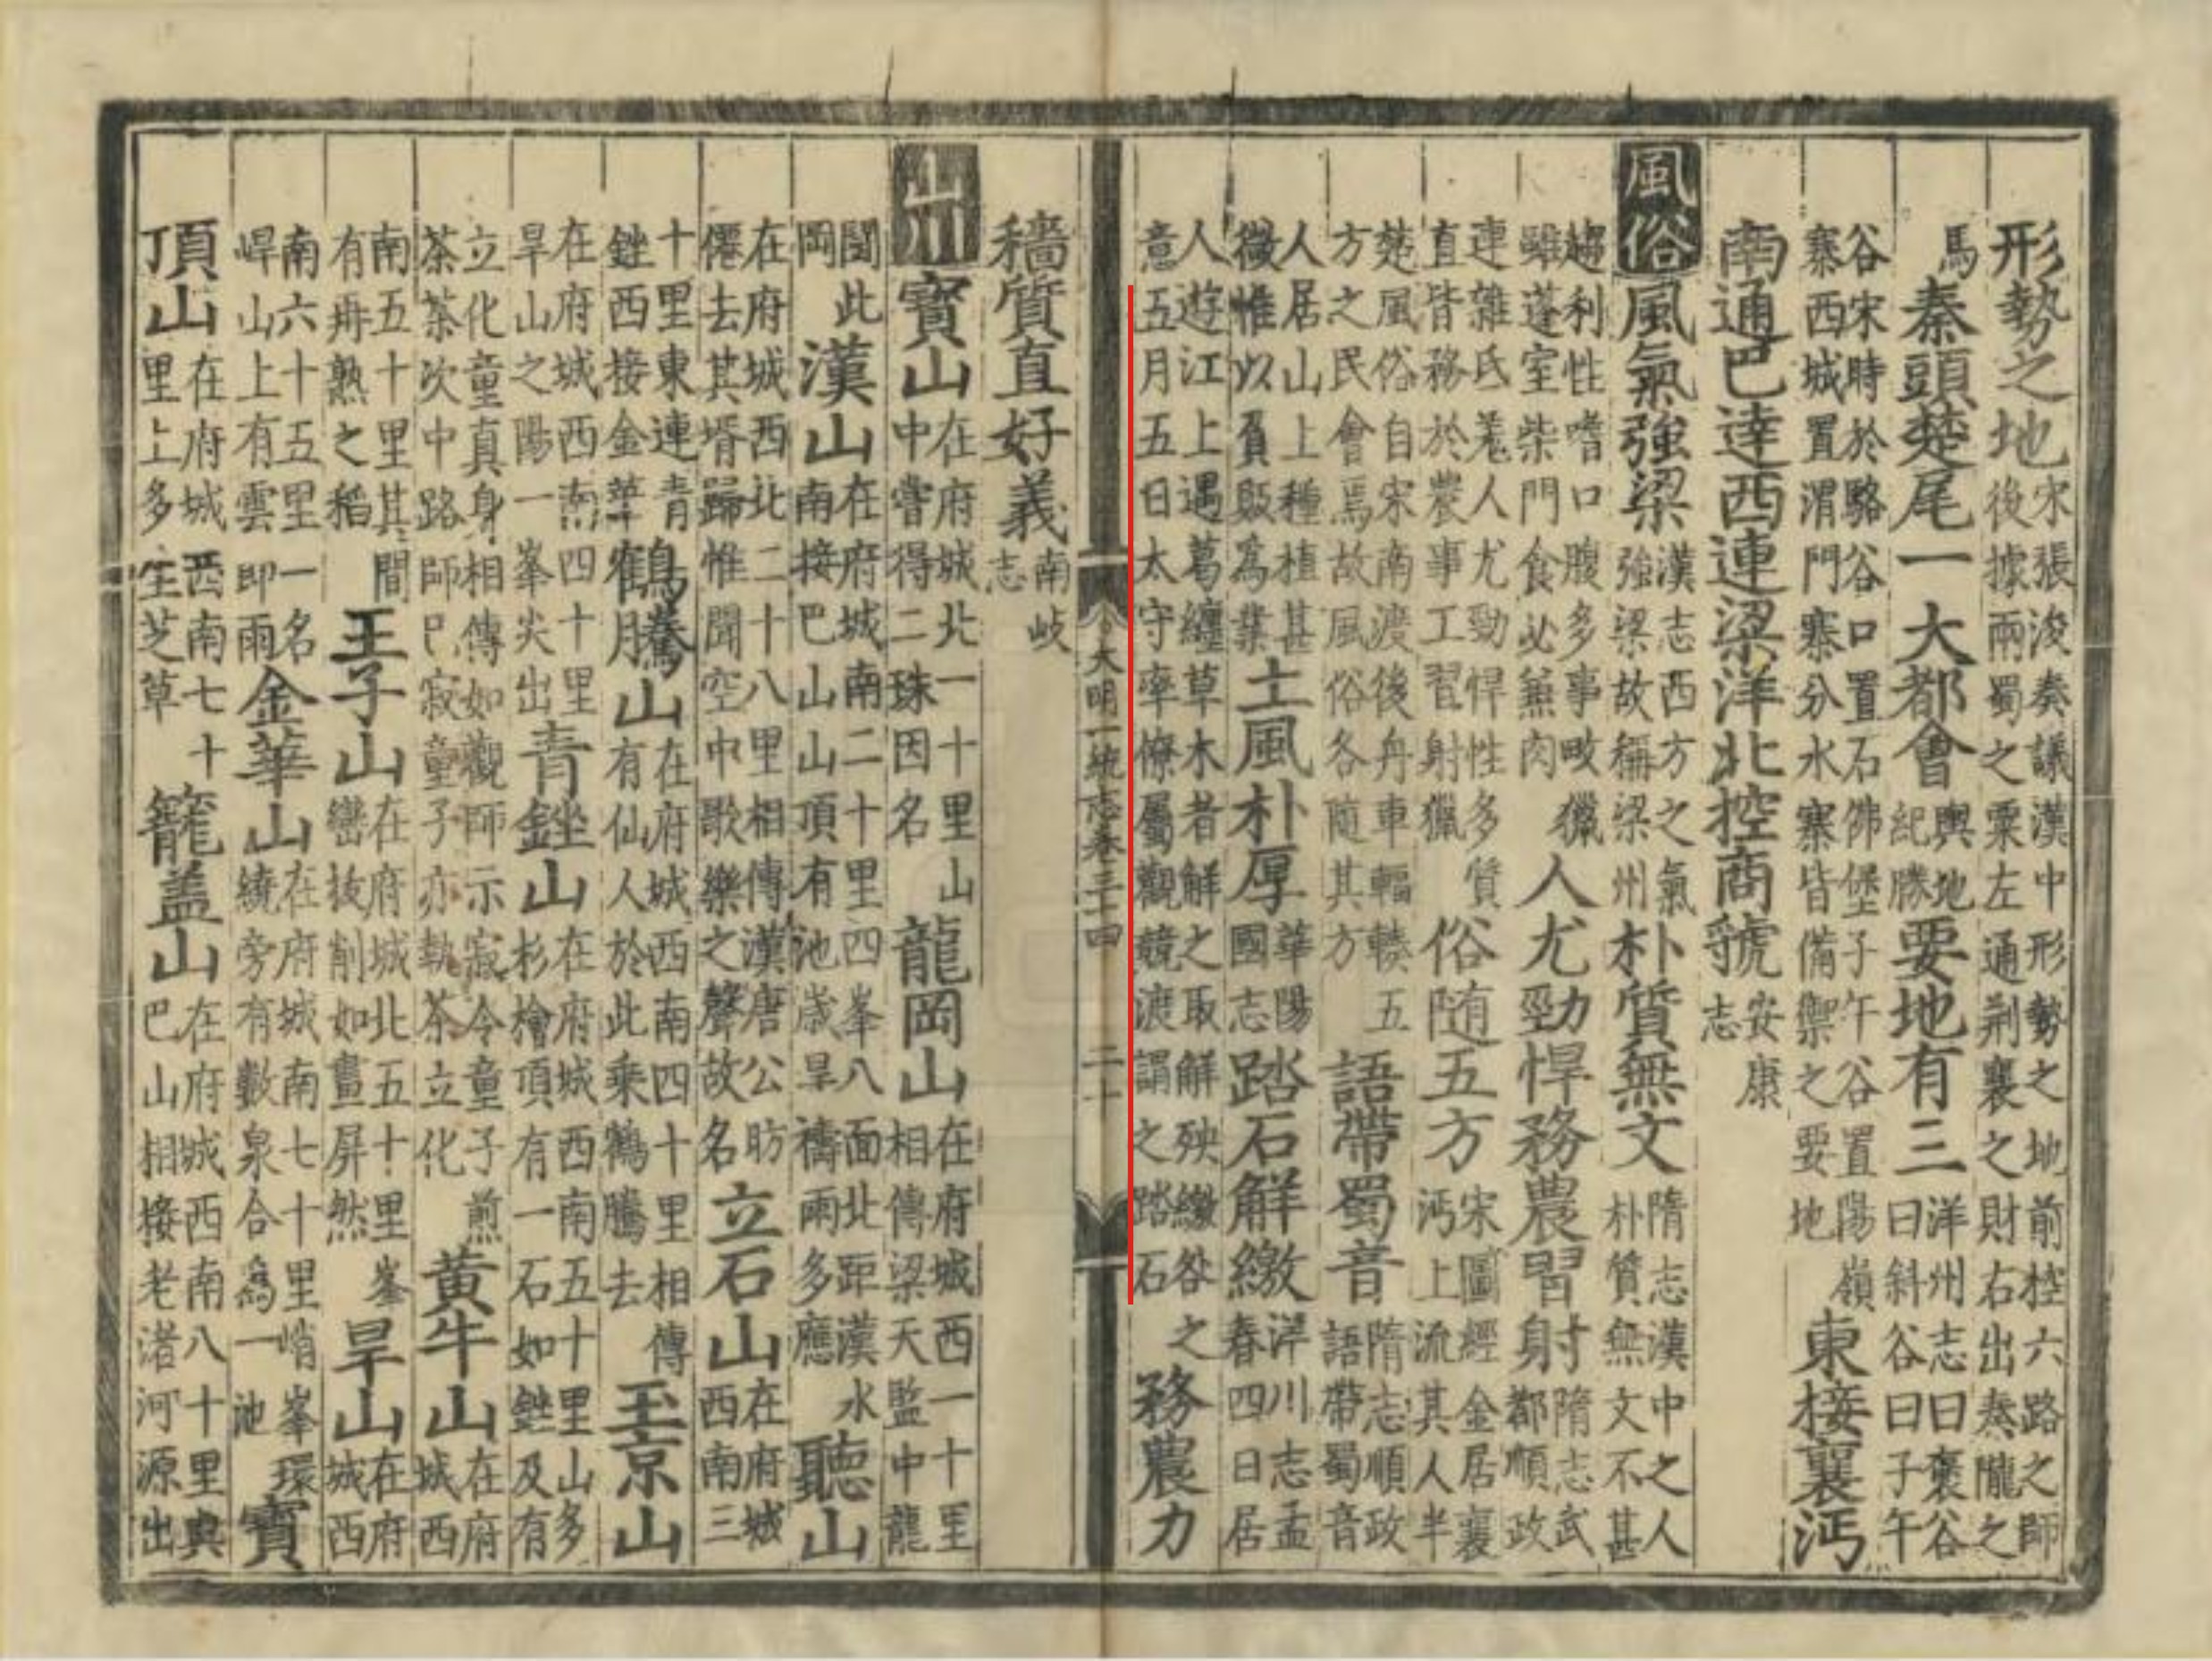 形勢之地宋張浚奏議漢中形勢之地前控六路之師後據兩蜀之粟左通荆襄之財右出秦隴之
馬秦頭楚尾一大都會輿地紀勝要地有三洋州志曰褒谷曰斜谷曰子午
谷宋時於駱谷口置石佛堡子午谷置陽嶺寨西城置渭門寨分水寨皆備禦之要地東接襄沔
南通巴達西連梁洋北控商虢安康志
風俗風氣強梁漢志西方之氣強梁故稱梁州朴質無文隋志漢中之人朴質無文不甚
趨利性嗜口腹多事畋獵雖蓬室柴門食必兼肉人尤勁悍務農習射隋志武都順政
連雜氐羌人尤勁悍性多質直皆務於農事工習射獵俗随五方宋圖經金居襄沔上流其人半
楚風俗自宋南渡後舟車輻輳五方之民會焉故風俗各隨其方語帶蜀音隋志順政語帶蜀音
人居山上種植甚微惟以負販爲業土風朴厚華陽國志踏石解繳洋川志孟春四日居
人遊江上遇葛纏草木者解之取解殃繳咎之意五月五日太守率僚屬觀競渡謂之踏石務農力
大明一統志卷三十四 二十
穡質直好義南岐志
山川寳山在府城北一十里山中嘗得二珠因名龍岡山在府城西一十里相傳梁天監中龍
闘此岡漢山在府城南二十里四峯八面北距漢水南接巴山山頂有池歲旱禱雨多應聽山
在府城西北二十八里相傳漢唐公昉僊去其壻歸惟聞空中歌樂之聲故名立石山在府城西南三
十里東連青銼西接金華鶴騰山在府城西南四十里相傳有仙人於此乘鶴騰去玉京山
在府城西南四十里旱山之陽一峯尖出青銼山在府城西南五十里山多杉檜頂有一石如銼及有
立化童真身相傳如觀師示寂令童子煎茶茶次中路師已寂童子亦執茶立化黄牛山在府城西
南五十里其間有再熟之稻王子山在府城北五十里峯巒拔削如畫屏然旱山在府城西
南六十五里一名悍山上有雲即雨金華山在府城南七十里峭峯環繞旁有數泉合爲一池寳
頂山在府城西南七十里上多生芝草籠盖山在府城西南八十里與巴山相接老渚河源出